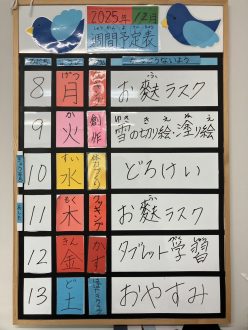 2025年 12月
週間予定表
8 げつ 月 お麩ラスク ふ
9 か 火 創作 雪の切絵・塗り絵 ゆき きりえ ぬ え
10 すい 水 どろけい
11 もく 木 クッキング お麩ラスク ふ
12 きん 金 タブレット学習 がくしゅう
13 ど 土 おやすみ